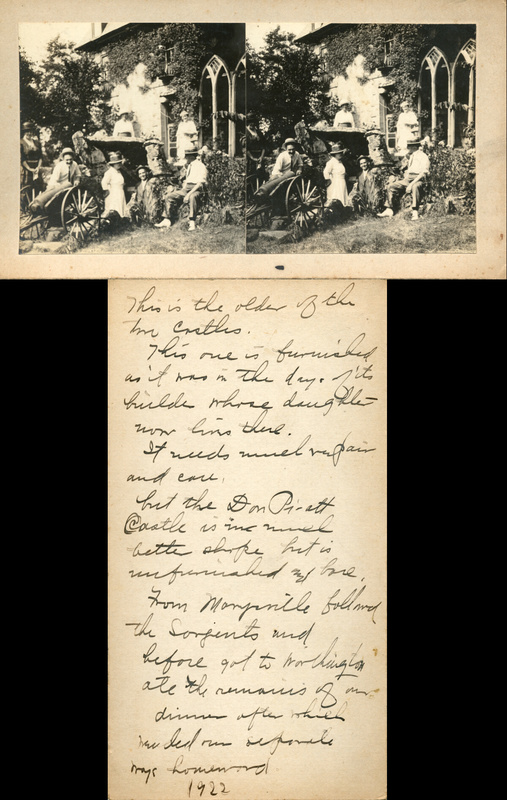 This is the older of the
two Castles.
This one is furnished
as it was in the days of its
builder whose daughter
now lives there.
It needs much repair
and care.
but the Don Piatt
Castle is in much
better shape but is
unfurnished and bare.
From Marysville followed
the Sargents and
before got to Worthington
ate the remains of our
dinner after which
we led our seperate
ways homeword.
1922